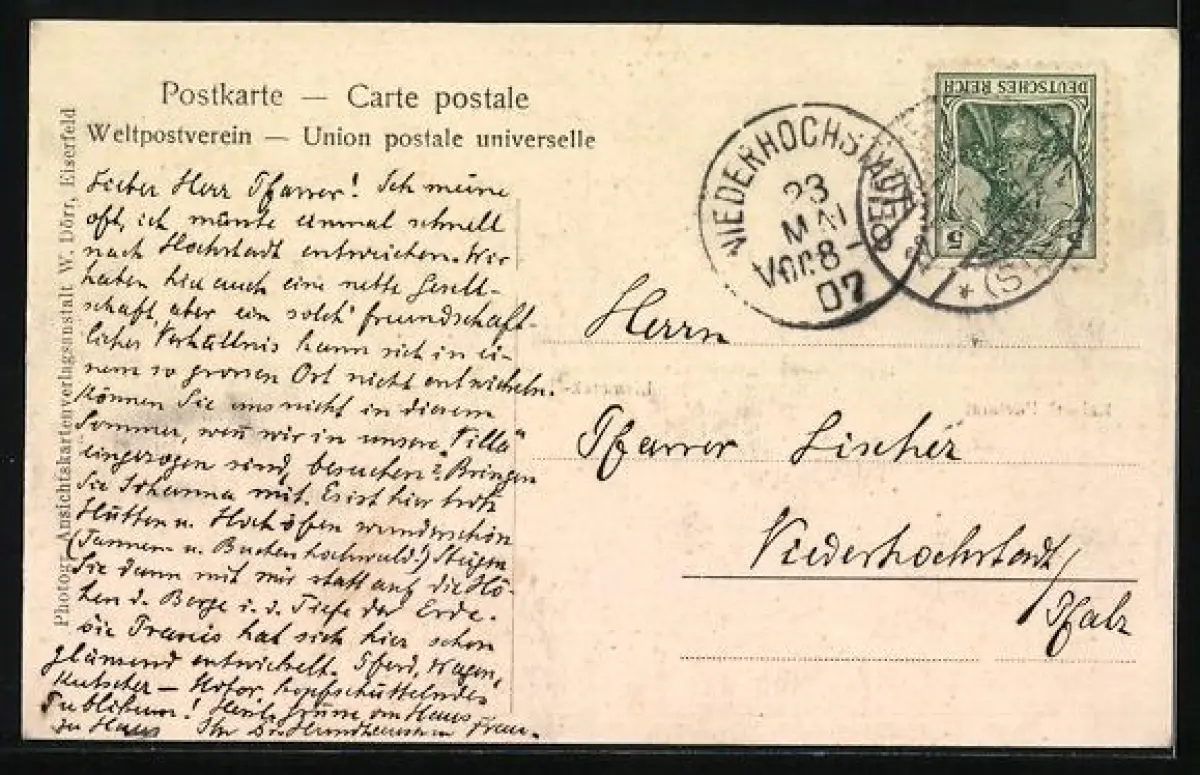 Postkarte — Carte postale
Weltpostverein — Union postale universelle
Photogr. Ansichtskartenverlagsanstalt W. Dörr, Eiserfeld
Lieber Herr Pfarrer! Ich meine
oft, ich müsste einmal schnell
nach Hochstadt entweichen. Wir
haben hier auch eine nette Gesell-
schaft, aber ein solch' freundschaft-
liches Verhältnis kann sich in ei-
nem so grossen Ort nicht entwickeln.
Können Sie uns nicht in diesem
Sommer, wenn wir in unsere „Villa"
eingezogen sind, besuchen? Bringen
Sie Johanna mit. Es ist hier trotz
Hütten u. Hochöfen wunderschön
(Tannen u. Buchenhochwald!) Steigen
Sie dann mit mir statt auf die Hö-
hen d. Berge i. d. Tiefe der Erde.
Die Praxis hat sich hier schon
glänzend entwickelt. Pferd, Wagen,
Kutscher — kopfschüttelndes
Publikum! Herzl. Grüsse von Haus
zu Haus Ihr Dr.
NIEDERHOCHSTADT
23
MAI
Vor. 8-
07
DEUTSCHES REICH
5
5
* (S
Herrn
Pfarrer Lischer
Niederhochstadt
Pfalz